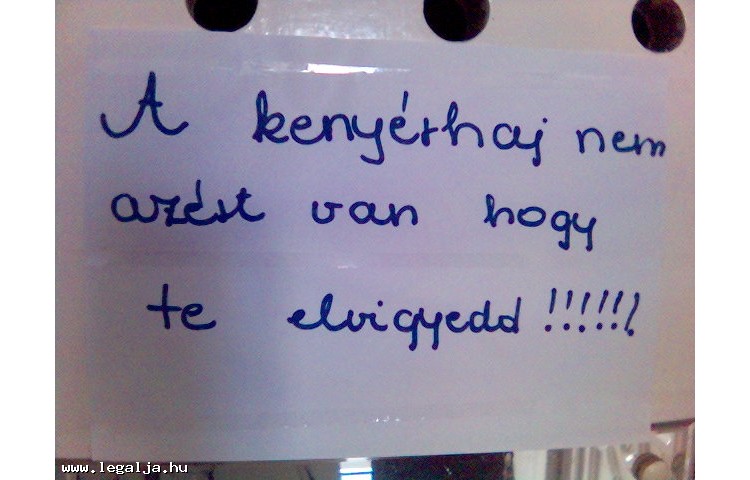 A kenyérhaj nem
azért van hogy
te elvigyedd!!!!!!
www.legalja.hu